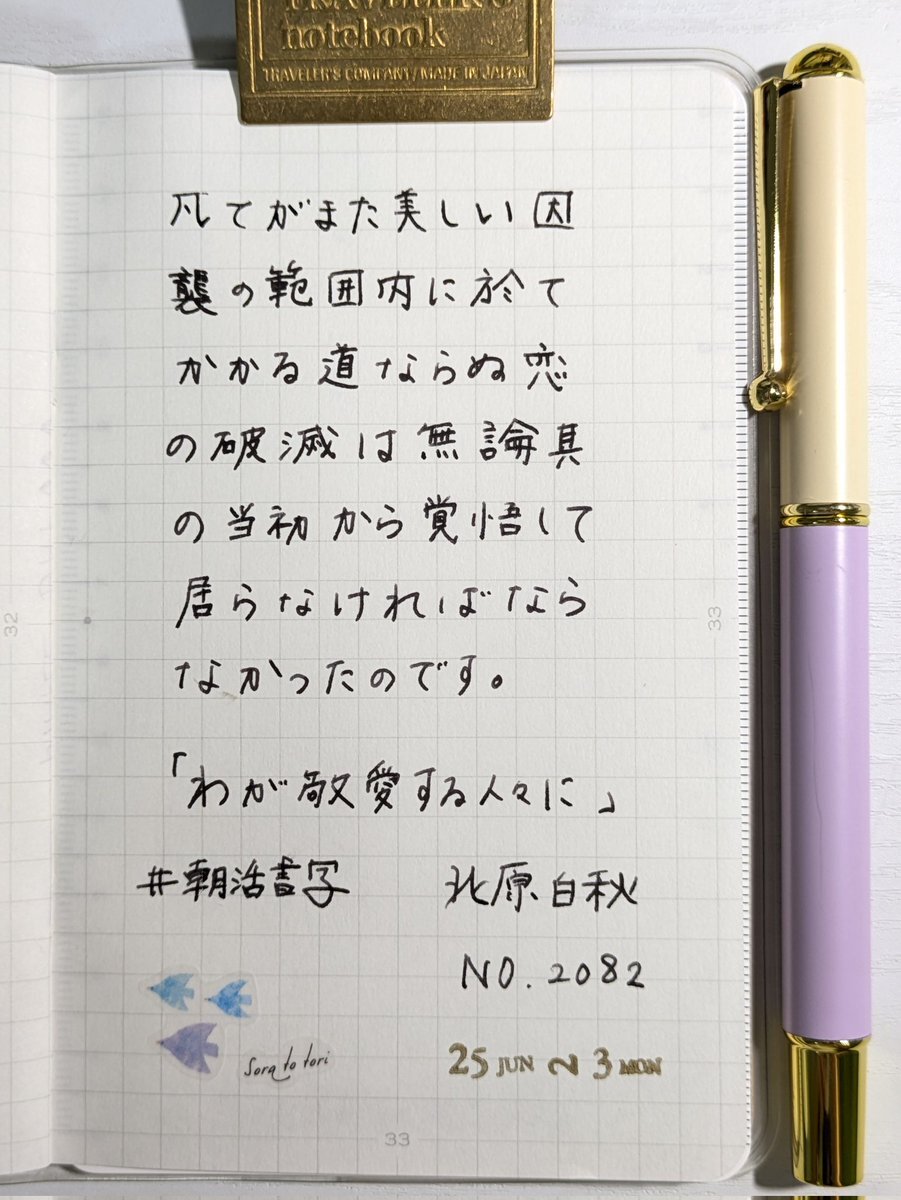 notebook
TRAVELER'S COMPANY/MADE IN JAPAN
凡てがまた美しい因
襲の範囲内に於て
かかる道ならぬ恋
の破滅は無論其
の当初から覚悟して
居らなければなら
なかったのです。
「わが敬愛する人々に」
#朝活書写
北原白秋
NO.2082
sora to tori
25 JUN ~ 3 MON
32
33
33